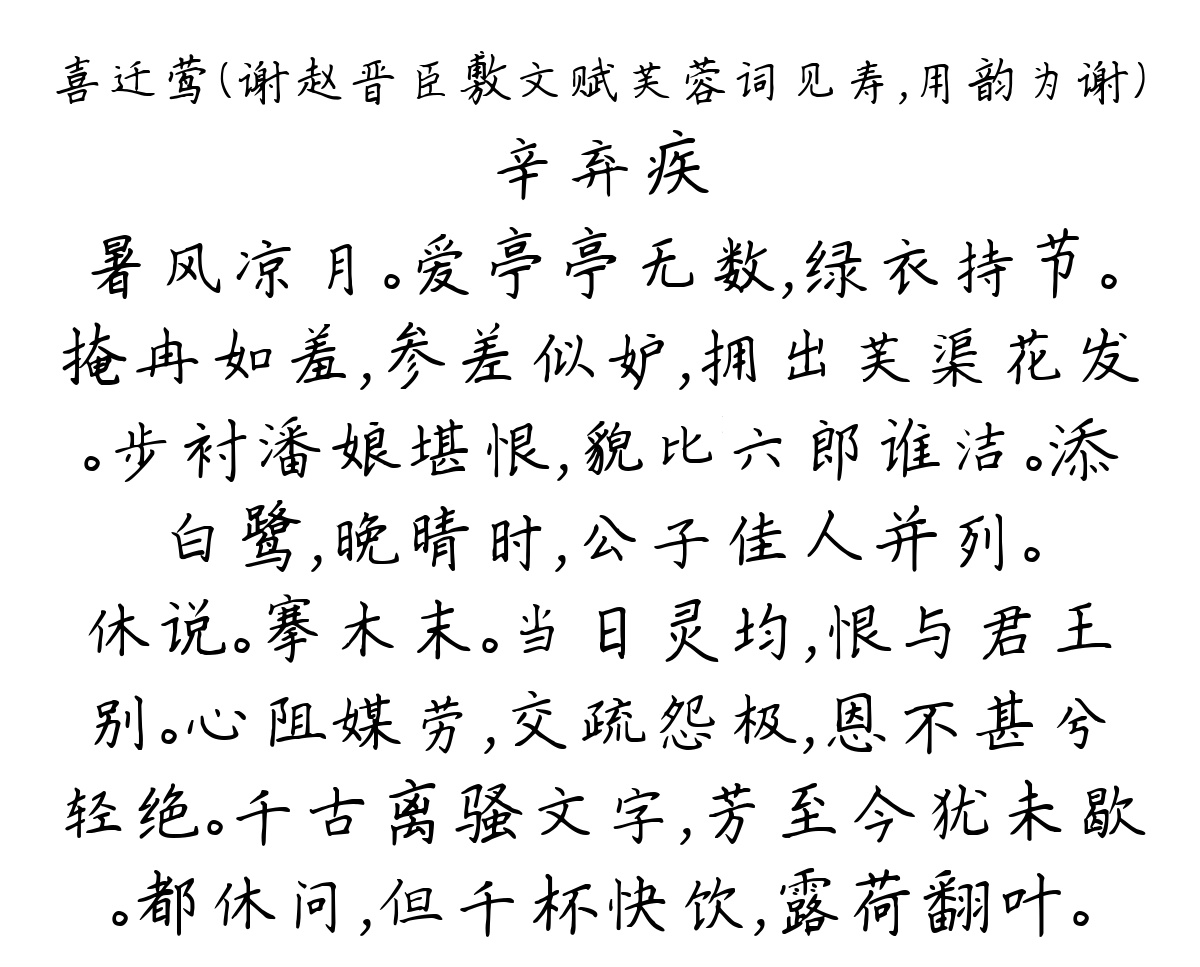 喜迁莺(谢赵晋臣敷文赋芙蓉词见寿,用韵为谢)
辛弃疾
暑风凉月。爱亭亭无数,绿衣持节。
掩冉如羞,参差似妒,拥出芙渠花发
。步衬潘娘堪恨,貌比六郎谁洁。添
白鹭,晚晴时,公子佳人并列。
休说。搴木末。当日灵均,恨与君王
别。心阻媒劳,交疏怨极,恩不甚兮
轻绝。千古离骚文字,芳至今犹未歇
。都休问,但千杯快饮,露荷翻叶。